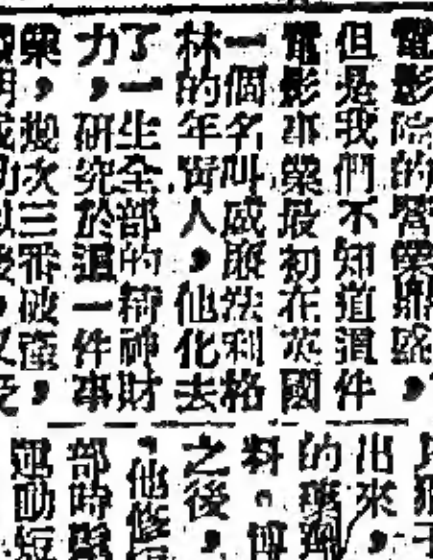 電影院的營業鼎盛，
但是我們不知道這件
電影事業最初在英國
一個名叫威廉法利格
林的年青人，他化去
了一生全部的精神財
力，研究於這一件事
業，次三番破產，
明成功以後，又
出來，
的藥
料。博
之後，
，他修
部時
運動短